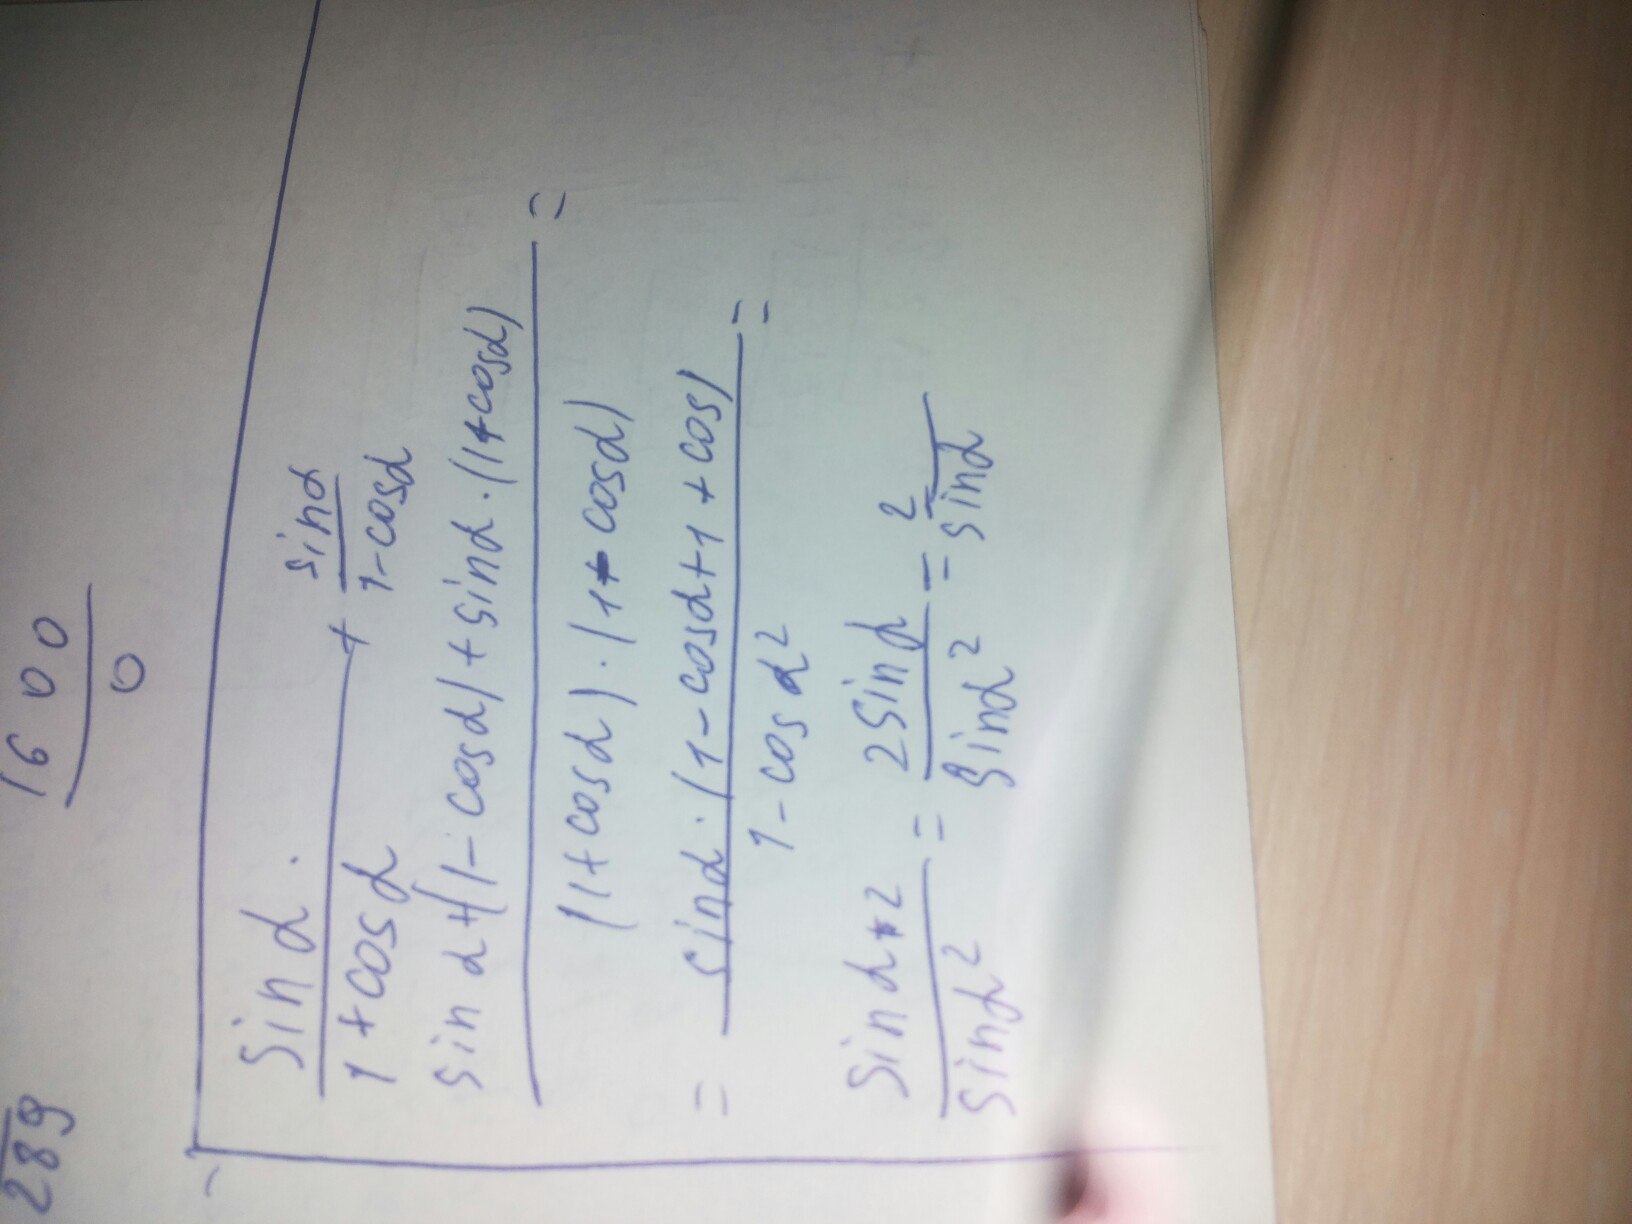 1600
0
289
sinα/(1+cosα) + sinα/(1-cosα)
(sinα·(1-cosα)+sinα·(1+cosα))/((1+cosα)·(1-cosα)) =
= (sinα·(1-cosα+1+cos))/(1-cosα²) =
(sinα·2)/(sinα²) = (2sinα)/(sinα²) = 2/(sinα)